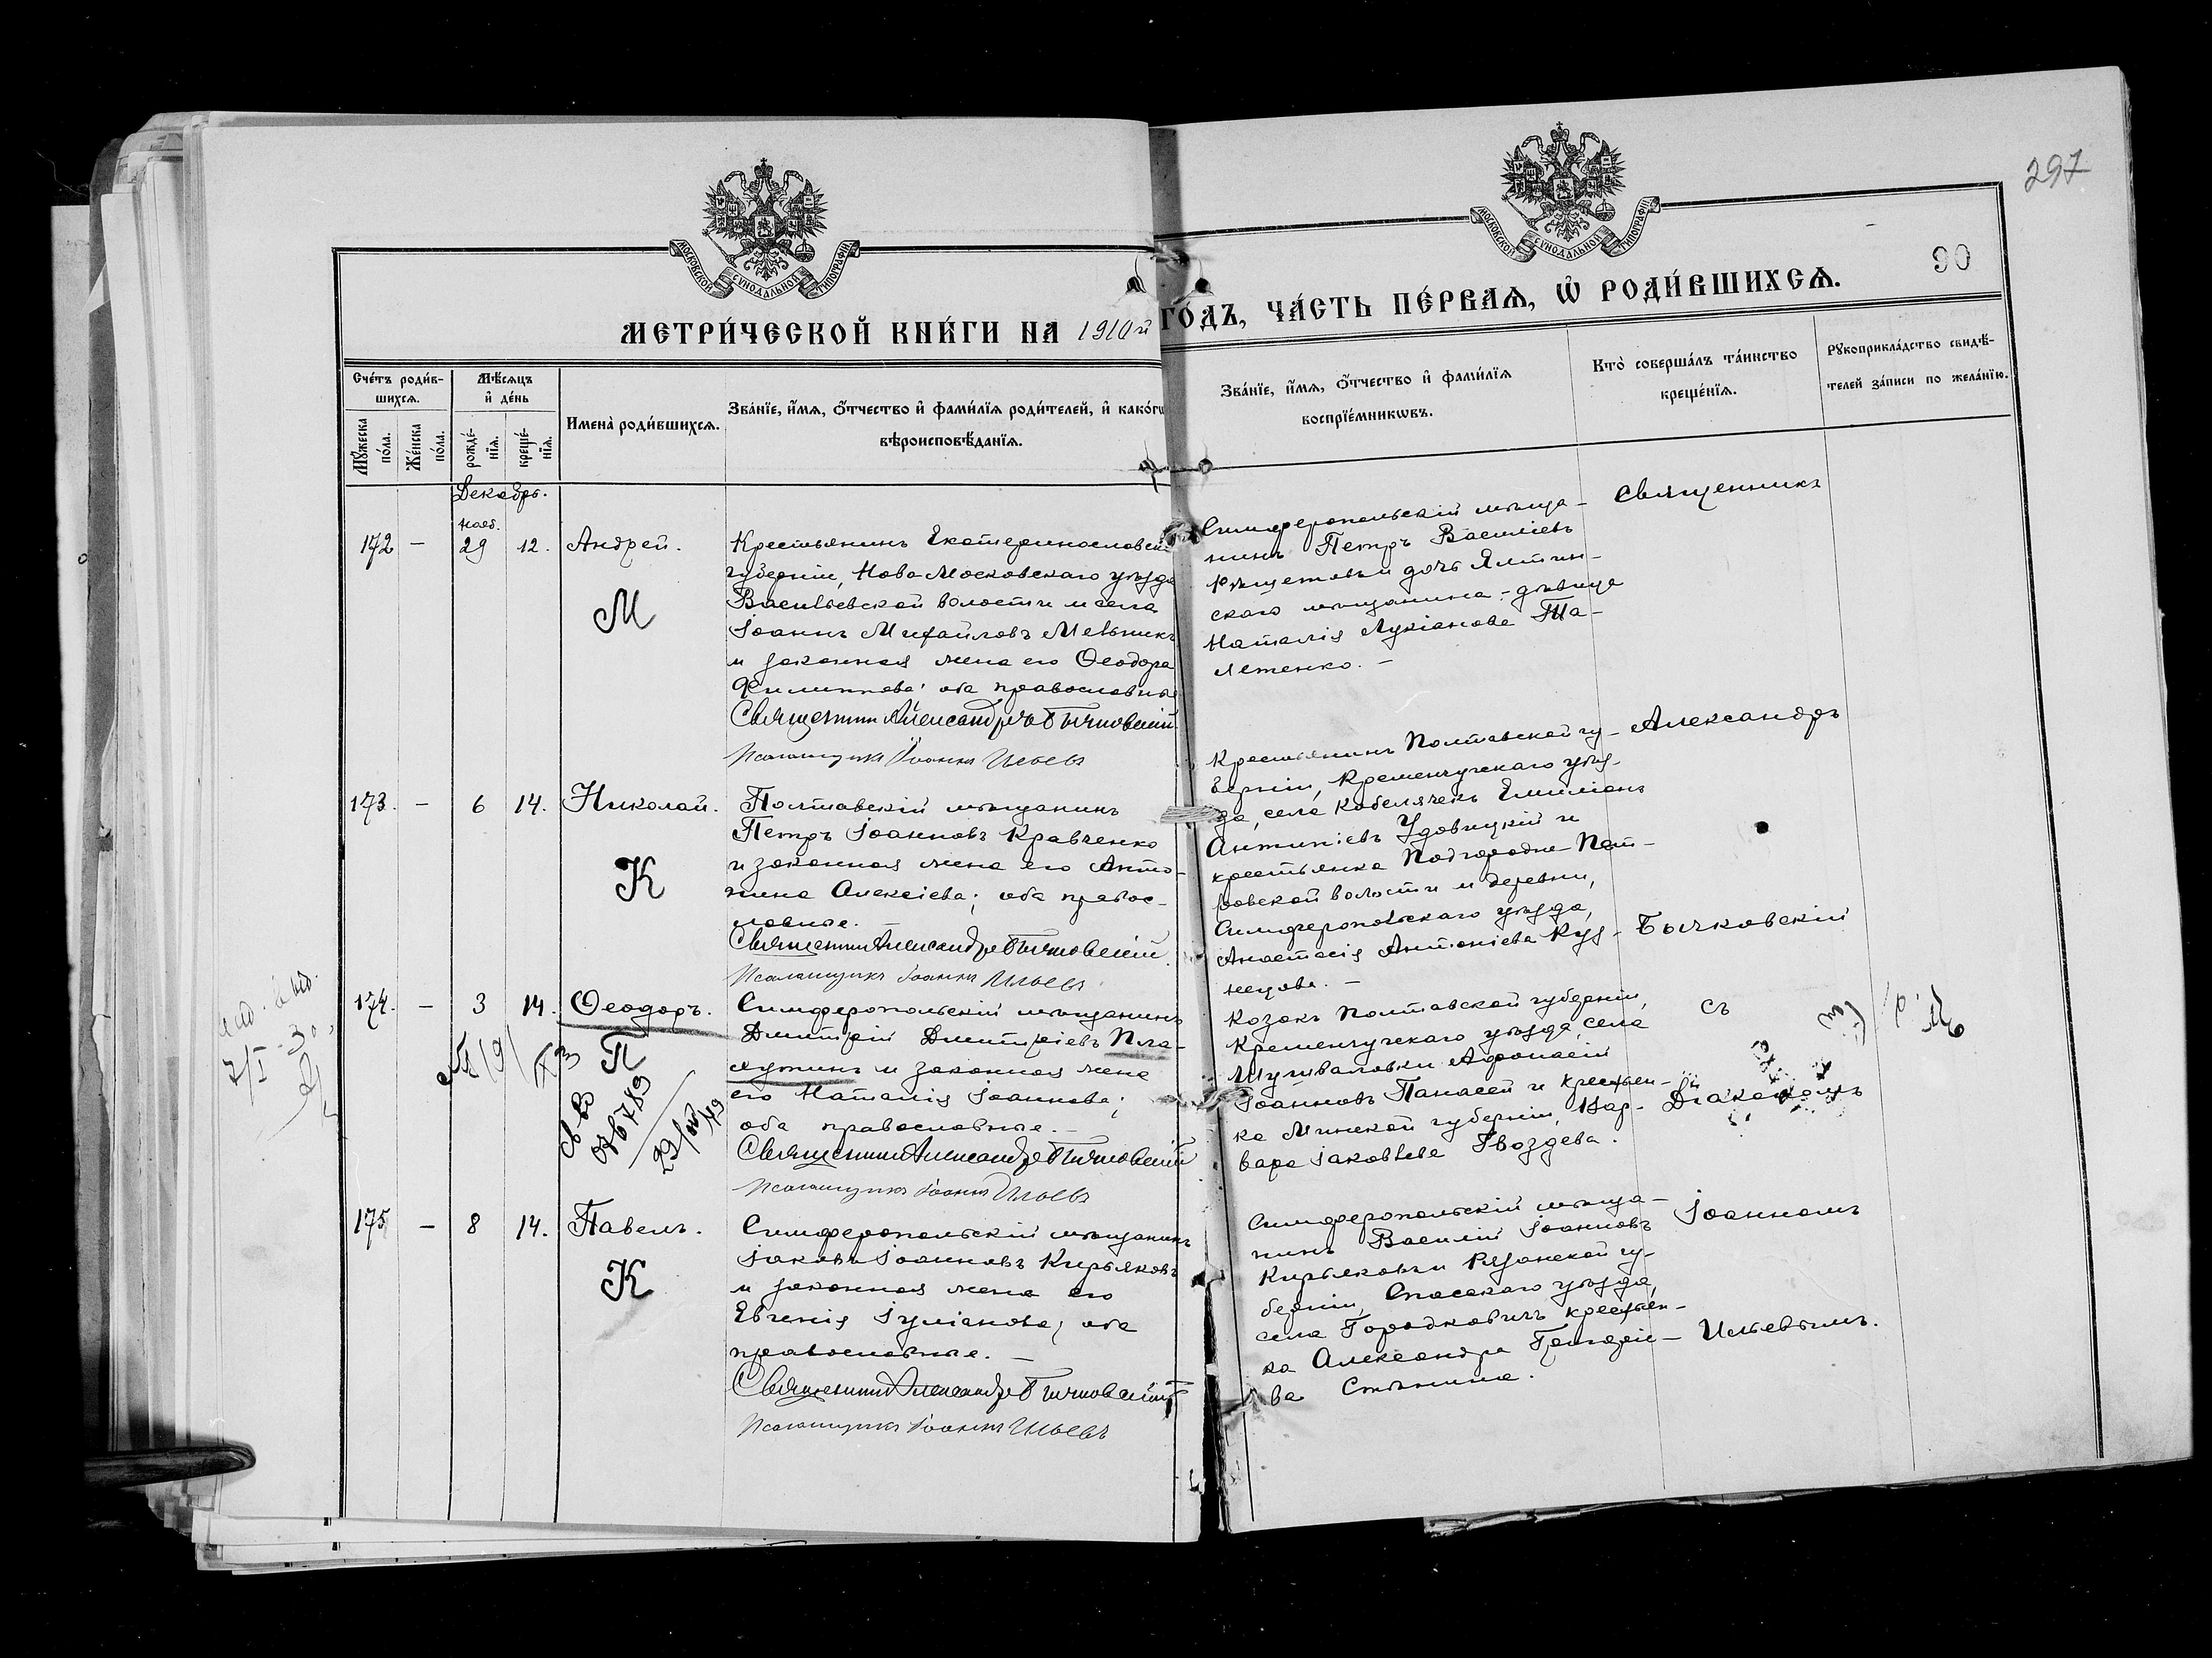 297
90
МОСКОВСКОЙ СУНОДАЛЬНОЙ ТИПОГРАФІИ
МОСКОВСКОЙ СУНОДАЛЬНОЙ ТИПОГРАФІИ
МЕТРИ́ЧЕСКОЙ КНИ́ГИ НА 1910й ГО́ДЪ, ЧА́СТЬ ПЕ́РВАѦ, Ѡ҆ РОДИ́ВШИХСѦ.
Сче́тъ роди́в-
шихсѧ.
Мꙋжеска по́ла.
Же́нска по́ла.
Мѣ́сѧцъ
и҆ де́нь
рожде́-
нїѧ.
креще́-
нїѧ.
Имена̀ роди́вшихсѧ.
Зва́нїе, и҆́мѧ, ѻ҆́тчество и҆ фами́лїѧ роди́телей, и҆ како́гѡ
вѣроисповѣ́данїѧ.
Зва́нїе, и҆́мѧ, ѻ҆́тчество и҆ фами́лїѧ
воспрїе́мникѡвъ.
Кто̀ соверша́лъ та́инство
креще́нїѧ.
Рꙋкоприкла́дство свидѣ́-
телей за́писи по жела́нїю.
Декабрь.
Нояб.
172 – 29 12. Андрей.
М
Крестьянинъ Екатеринославск
губерніи, Ново Московскаго уѣзда
Васильевской волости и села
Іоаннъ Михайловъ Мельникъ
и законная жена его Ѳеодора
Филиппова; оба православные
Священникъ Александръ Бычковскій
Псаломщикъ Іоаннъ Ильевъ
Симферопольскій мѣща-
нинъ Петръ Василіевъ
и дочь Ялтин-
скаго мѣщанина - дѣвица
Наталія Лукіанова Та-
летенко. –
Священникъ
173. – 6 14. Николай.
К
Полтавскій мѣщанинъ
Петръ Іоанновъ Кравченко
и законная жена его Анто-
нина Алексіева; оба правос-
лавные. –
Священникъ Александръ Бычковскій.
Псаломщикъ Іоаннъ Ильевъ
Крестьянинъ Полтавской гу-
берніи, Кременчугскаго уѣз-
да, села Кобелячекъ Емиліанъ
Антипіевъ Удовицкій и
крестьянка Подгородне-Пет-
ровской волости и деревни,
Симферопольскаго уѣзда,
Анастасія Антоніева Куз-
нецова. –
Александръ
Бычковскій
174. – 3 14. Ѳеодоръ.
П
Симферопольскій мѣщанинъ
Дмитрій Дмитріевъ Пла-
и законная жена
его Наталія Іоаннова;
оба православные. –
Священникъ Александръ Бычковскій
Псаломщикъ Іоаннъ Ильевъ
Козакъ Полтавской губерніи,
Кременчугскаго уѣзда, села
Аѳонасій
Іоанновъ Панасей и крестьян-
ка Минской губерніи, Вар-
вара Іаковлева Гвоздева.
съ
Діакономъ
175 – 8 14. Павелъ.
К
Симферопольскій мѣщанинъ
Іаковъ Іоанновъ Кирьяковъ
и законная жена его
Евгенія Іуліанова; оба
православные. –
Священникъ Александръ Бычковскій
Псаломщикъ Іоаннъ Ильевъ
Симферопольскій мѣща-
нинъ Василій Іоанновъ
Кирьяковъ и Рязанской гу-
берніи, Спасскаго уѣзда,
села Городковичъ крестьян-
ка Александра
ва
Іоанномъ
Ильевымъ.